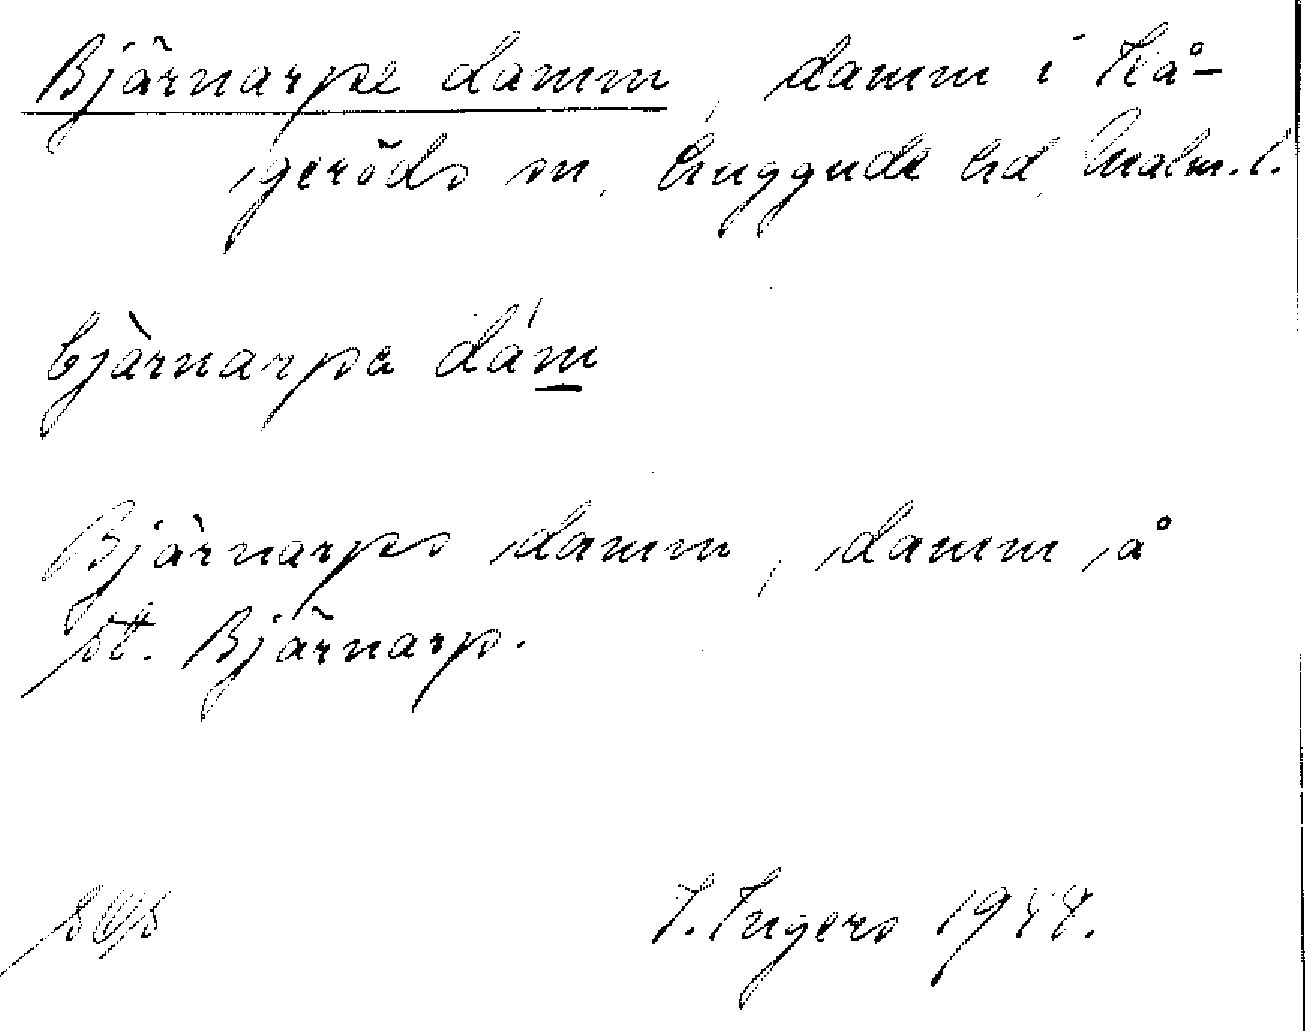 Bjärnarpe damm, damm i Kå-
geröds sn, Luggude hd, Malm. l.
bjàrnarpa dám
Bjärnarps damm, damm å
St. Bjärnarp.
I. Ingers 1944.